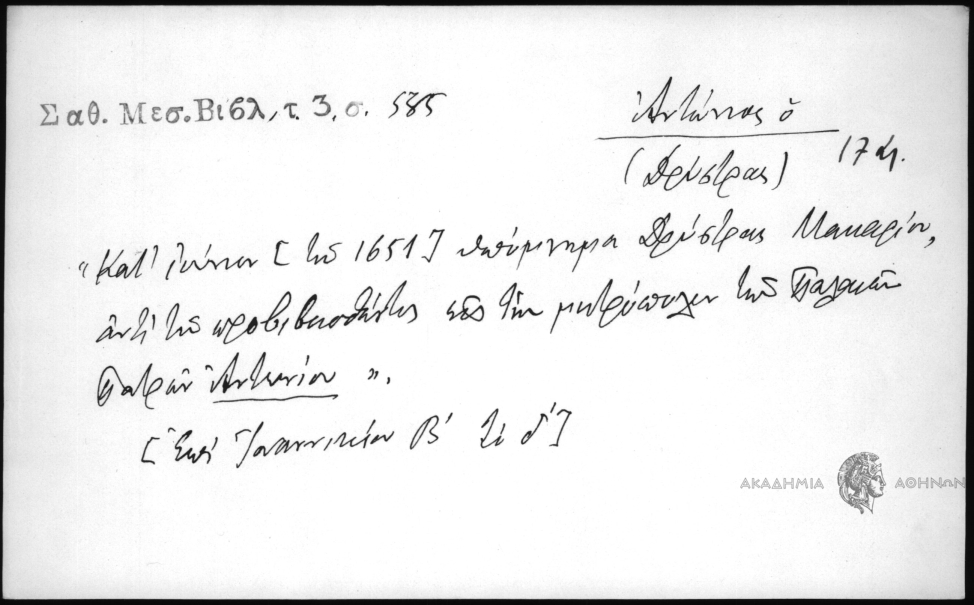 Σαθ. Μεσ. Βιβλ, τ. 3, σ. 585
Ἀντώνιος ὁ
(Δρύστρας) 17 αἰ.
"Κατ' Ἰούνιον [τοῦ 1651] ὑπόμνημα Δρύστρας Μακαρίου,
ἀντὶ τοῦ προβιβασθέντος εἰς τὴν μητρόπολιν τῶν Παλαιῶν
Πατρῶν Ἀντωνίου ".
[Ἐπὶ Ἰωαννικίου Β' τὸ δ']
ΑΚΑΔΗΜΙΑ ΑΘΗΝΩΝ